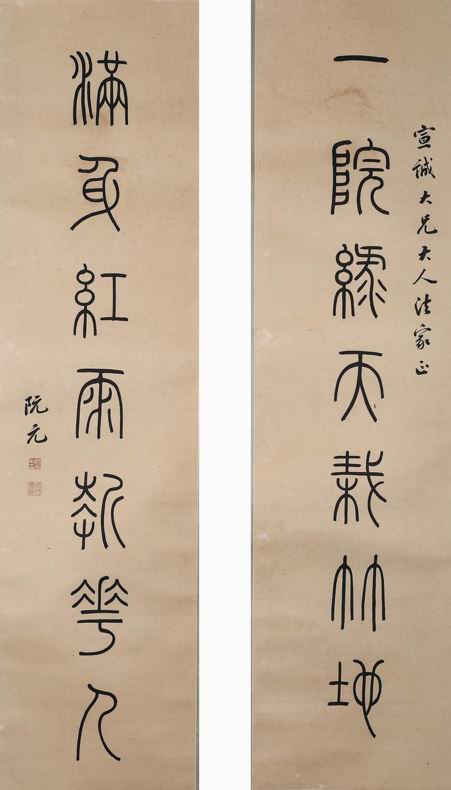 宣誠大兄大人法家正
一院綠天栽竹地
滿身紅雨折華人
阮元